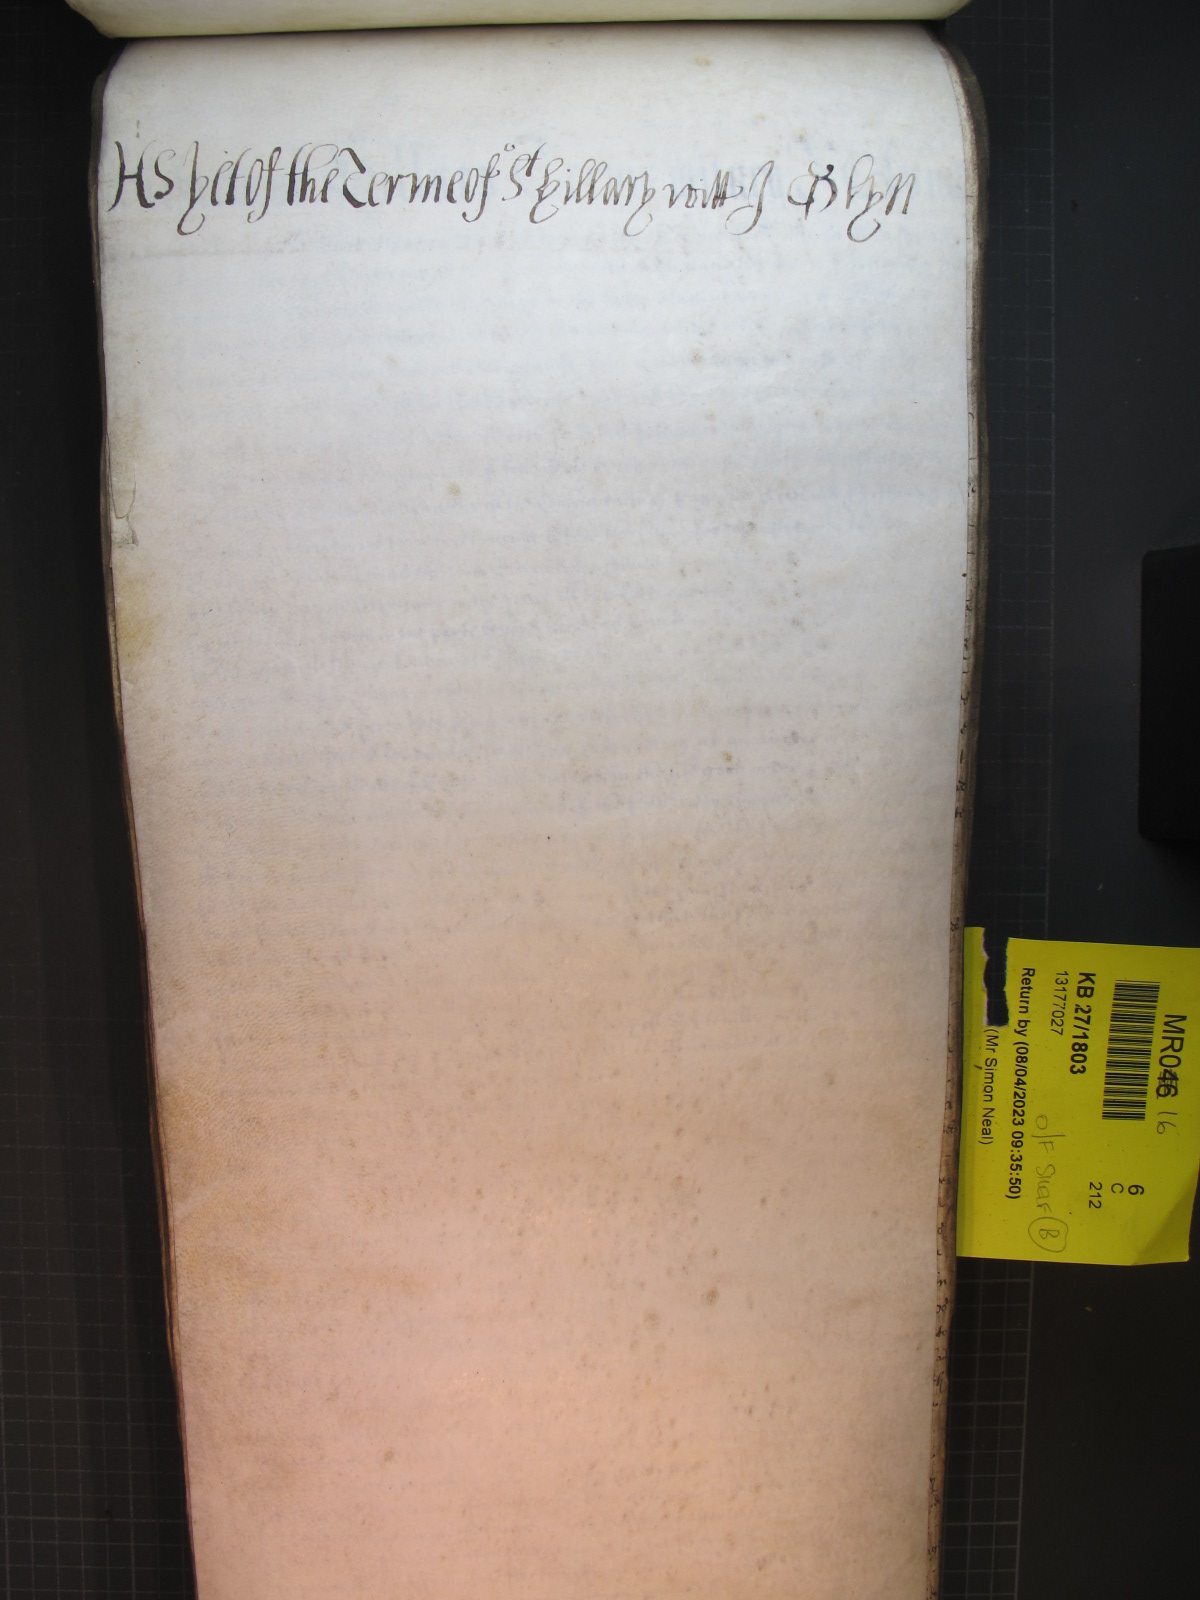 As yet of the Terme of St Hillary witt J Glyn
MR046 16
6
C
212
KB 27/1803
13177027
o/f Shar B
Return by (08/04/2023 09:35:50)
(Mr Simon Neal)